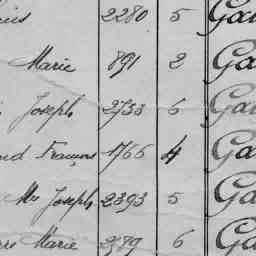 2280 5 Ga
Marie 891 2 Ga
Joseph 2733 5 Ga
François 1766 4 Ga
Joseph 2393 5 Ga
Marie 2589 6 Ga